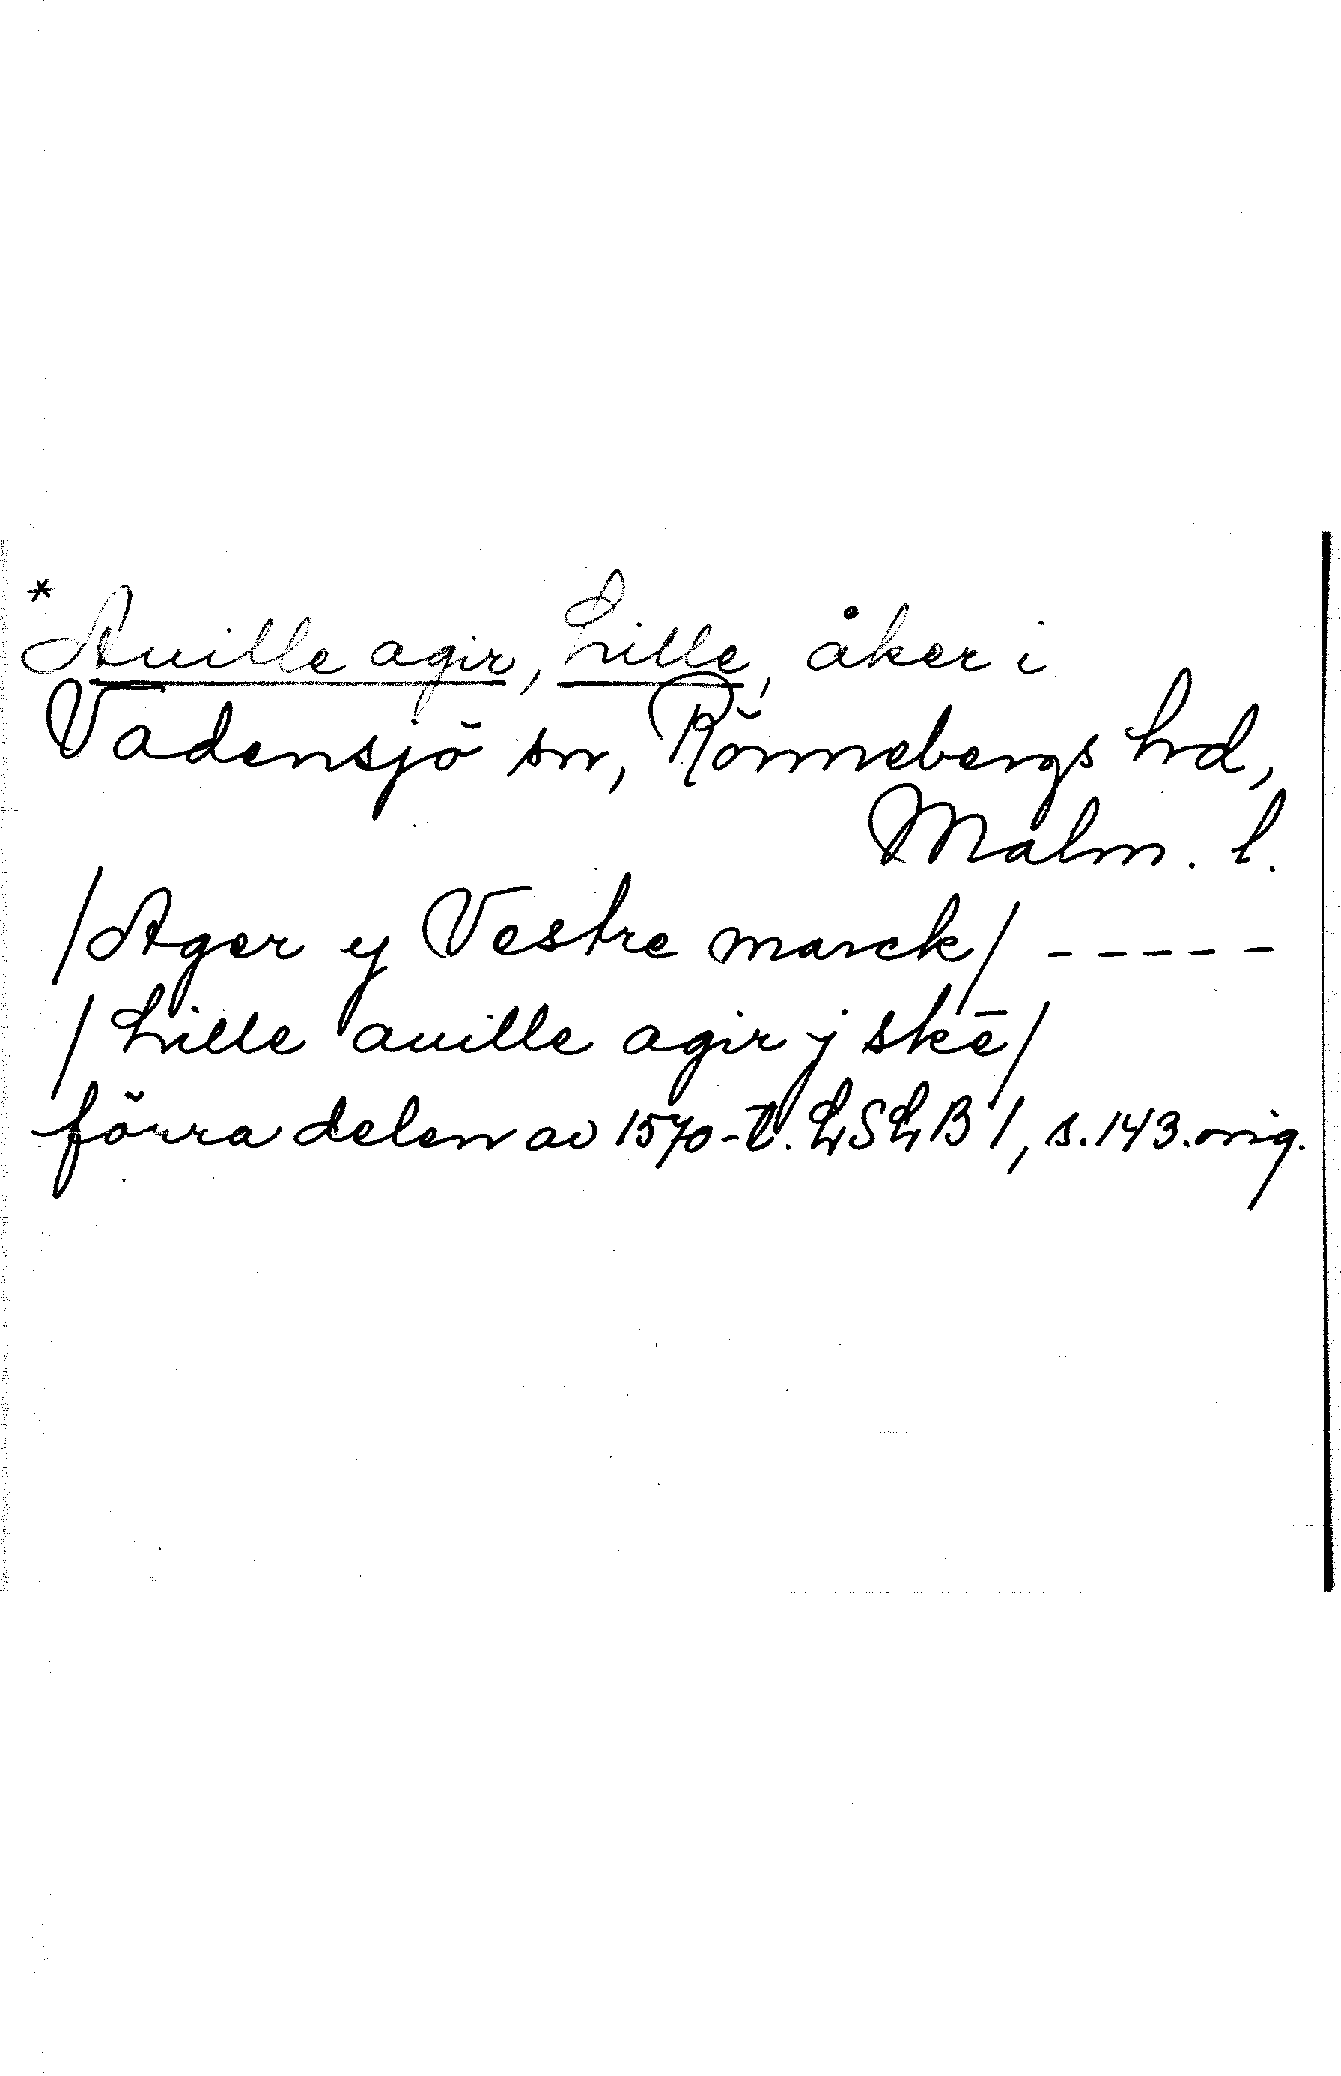 *
Auille agir, Lille, åker i
Vadensjö sn, Rönnebergs hd,
Malm. l.
/Ager y Vestre marck/ -----
/Lille auille agir j skē/
förra delen av 1570-t. LSLB 1, s. 143. orig.